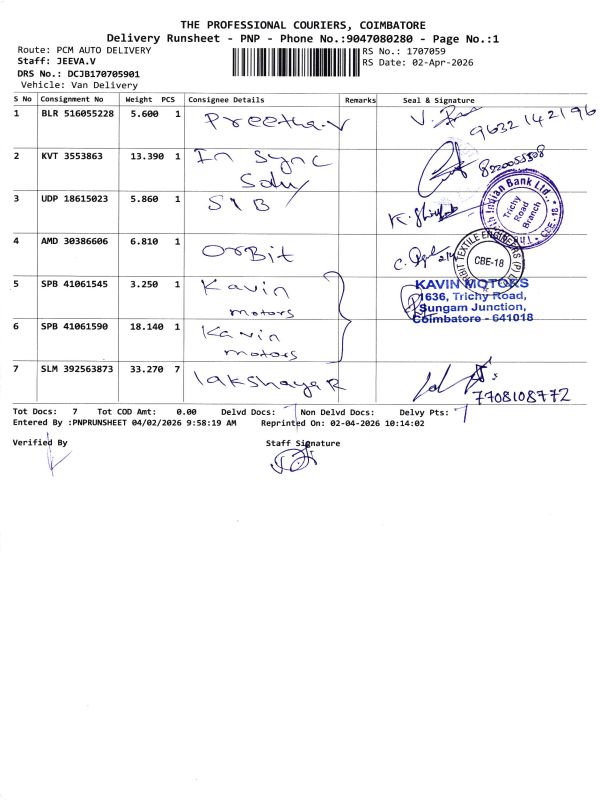 THE PROFESSIONAL COURIERS, COIMBATORE
Delivery Runsheet - PNP - Phone No.:9047080280 - Page No.:1
Route: PCM AUTO DELIVERY
RS No.: 1707059
Staff: JEEVA.V
RS Date: 02-Apr-2026
DRS No.: DCJB170705901
Vehicle: Van Delivery
S No Consignment No Weight PCS Consignee Details Remarks Seal & Signature
1 BLR 516055228 5.600 1 Preetha.V 9632142196
2 KVT 3553863 13.390 1 In Sync
3 UDP 18615023 5.860 1 SIB
Indian Bank Ltd.,
Trichy
Road
Branch
CBE-18
4 AMD 30386606 6.810 1 Orbit
TEXTILE ENGINEERS (P)
CBE-18
5 SPB 41061545 3.250 1 Kavin
motors
KAVIN MOTORS
1636, Trichy Road,
Sungam Junction,
Coimbatore - 641018
6 SPB 41061590 18.140 1 Kavin
motors
7 SLM 392563873 33.270 7 lakshaya R
7708108772
Tot Docs: 7 Tot COD Amt: 0.00 Delvd Docs: 7 Non Delvd Docs: Delvy Pts: 7
Entered By :PNPRUNSHEET 04/02/2026 9:58:19 AM Reprinted On: 02-04-2026 10:14:02
Verified By Staff Signature